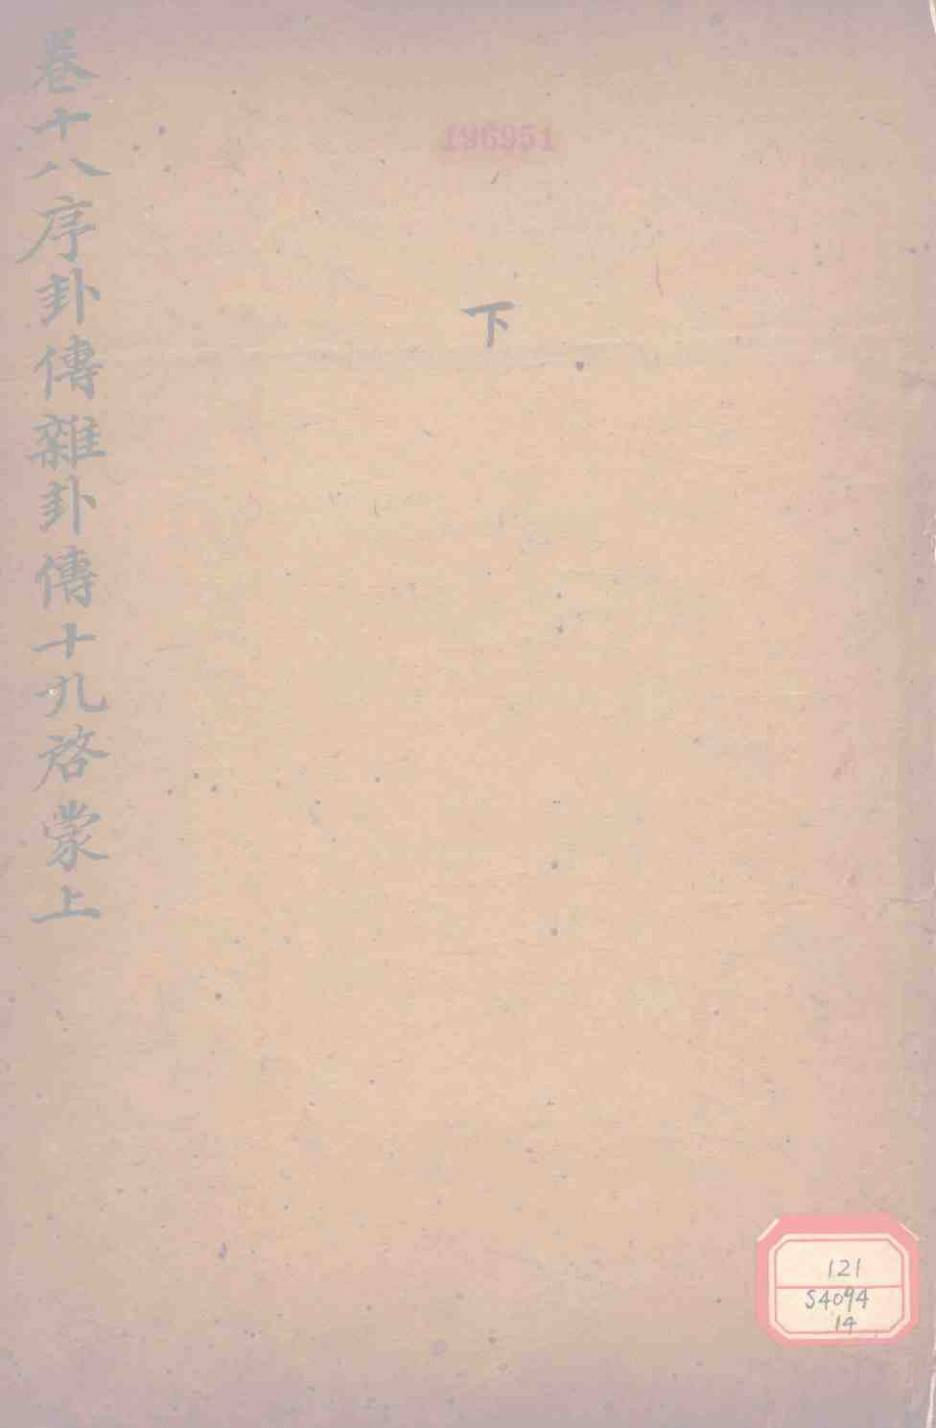 卷十八序卦傳雜卦傳十九啓蒙上
196951
下
121
S4094
14